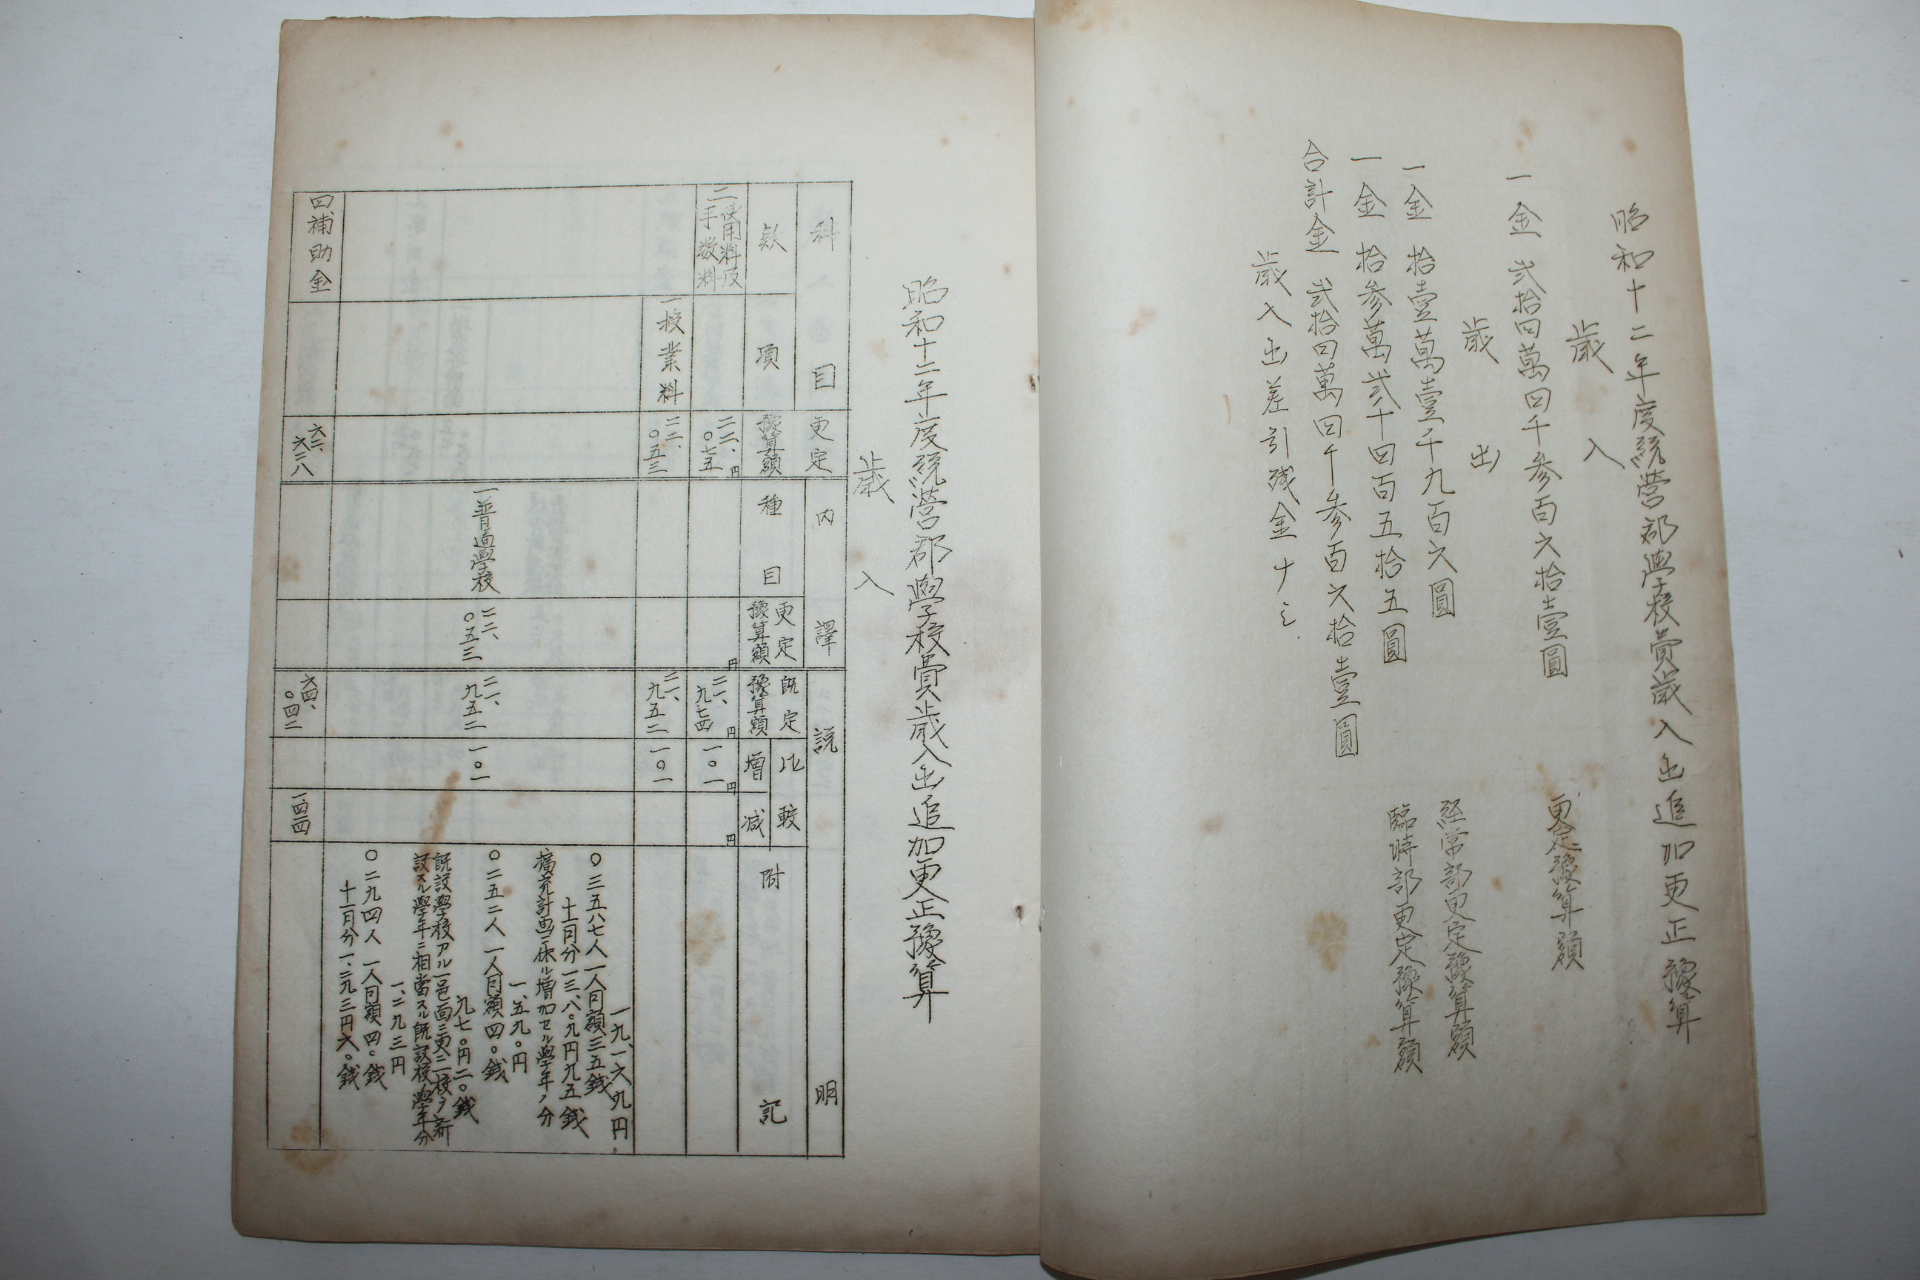 昭和十二年度統営郡學校費歳入出追加更正豫算
歳入
一金弐拾四萬四千参百六拾壹圓 更定豫算額
歳出
一金拾壹萬壹千九百六圓 経常部更定豫算額
一金拾参萬弐千四百五拾五圓 臨時部更定豫算額
合計金弐拾四萬四千参百六拾壹圓
歳入出差引残金ナシ
昭和十二年度統営郡學校費歳入出追加更正豫算
歳入
科目 内譯 説明
款 項 更定豫算額 種目 更定豫算額 既定豫算額 比較 増 減 附記
円 円 円 円 円
二使用料及手数料 二二、〇七五 二一、九七四 一〇一
一授業料 二二、〇五三 二一、九五二 一〇一
一普通學校 二二、〇五三 二一、九五二 一〇一
一九、一六九円
〇三五八七人一人月額三五銭
十一月分一三、八〇九円九五銭
擴充計画ニ依ル増加セル學年ノ分
一、五九〇円
〇二五二人一人月額四〇銭
九七〇円二〇銭
既設學校アル一邑面ニ更ニ一校ヲ新
設スル學年ニ相當スル既設校學年分
一、二九三円
〇二九四人一人月額四〇銭
十一月分一、二九三円六〇銭
四補助金 六三、六三八 六四、〇四二 一四四